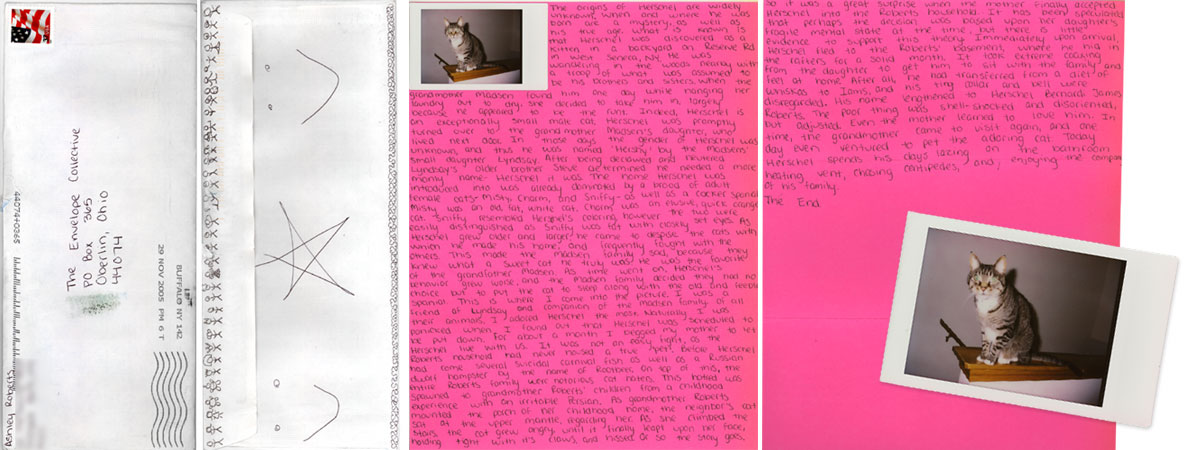 Ashley Roberts
The Envelope Collective
PO Box 365
Oberlin, Ohio
44074
44074+0365
BUFFALO NY 142
29 NOV 2005 PM 6 T
The origins of Herschel are widely
unknown. When and where he was
born are a mystery, as well as
his true age. What is known is
that Herschel was discovered as a
kitten in a backyard on Reserve Rd
in West Seneca, NY. He was
wandering in the weeds nearby with
a troop of what was assumed to
be his brothers and sisters. When the
grandmother Madsen found him one day while hanging her
laundry out to dry, she decided to take him in, largely
because he appeared to be the runt. Indeed, Herschel is
an exceptionally small male cat. Herschel was promptly
turned over to the grandmother Madsen's daughter, who
lived next door. In those days the gender of Herschel was
unknown, and thus he was named "Hershy" by the Madsens'
small daughter Lyndsay. After being declawed and neutered
Lyndsay's older brother Steve determined he needed a more
manly name- Herschel it was. The home Herschel was
introduced into was already dominated by a brood of adult
female cats- Misty, Charm, and Sniffy- as well as a cocker spaniel.
Misty was an old fat, white cat. Charm was an elusive, quick orange
cat. Sniffy resembled Herschel's coloring, however the two were
easily distinguished as Sniffy was fat with closely set eyes. As
Herschel grew older and larger he came to despise the cats with
whom he made his home, and frequently fought with the
others. This made the Madsen family sad, because they
knew what a sweet cat he truly was. He was the favorite
of the grandfather Madsen. As time went on, Herschel's
behavior grew worse, and the Madsen family decided they had no
choice but to put the cat to sleep along with the old and feeble
spaniel. This is where I come into the picture. I was a
friend of Lyndsay and companion of the Madsen family of all
their animals, I adored Herschel the most. Naturally I was
panicked when I found out that Herschel was scheduled to
be put down. For about a month I begged my mother to let
Herschel live with us. It was not an easy fight, as the
Roberts household had never housed a true "pet". Before Herschel
had come several suicidal carnival fish, as well as a Russian
dwarf hampster by the name of On top of this, the
entire Roberts family were notorious cat haters. This hatred was
spawned to grandmother Roberts' children from a childhood
experience with an irritable Persian. As grandmother Roberts
mounted the porch of her childhood home, the neighbor's cat
sat at the upper mantle, regarding her. As she climbed the
stairs, the cat grew angry, until it finally leapt upon her face,
holding tight with it's claws, and hissed. Or so the story goes.
So it was a great surprise when the mother finally accepted
Herschel into the Roberts household. It has been speculated
that perhaps the decision was based upon her daughter's
fragile mental state at the time, but there is little
evidence to support this theory. Immediately upon arrival,
Herschel fled to the Roberts' basement, where he hid in
the rafters for a solid month. It took extreme coaxing
from the daughter to get him to sit with the family and
feel at home. After all, he had transferred from a diet of
Whiskas to Iams, and his tiny collar and bell were
disregarded. His name lengthened to Herschel Bernard James
Roberts. The poor thing was shell-shocked and disoriented,
but adjusted. Even the mother learned to love him. In
time, the grandmother came to visit again, and one
day even ventured to pet the adoring cat. Today
Herschel spends his days lazing on the bathroom
heating vent, chasing centipedes, and enjoying the company
of his family.
The End.